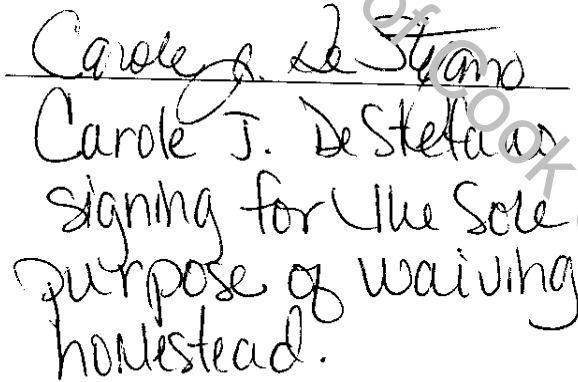 Carole J. DeStefano
Carole J. DeStefano
signing for the Sole
purpose of waiving
homestead.
of Cook